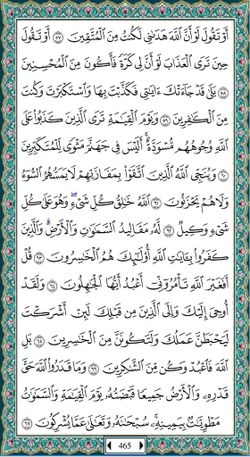 أَوْ تَقُولَ لَوْ أَنَّ ٱللَّهَ هَدَىٰنِى لَكُنتُ مِنَ ٱلْمُتَّقِينَ ٥٧ أَوْ تَقُولَ
حِينَ تَرَى ٱلْعَذَابَ لَوْ أَنَّ لِى كَرَّةً فَأَكُونَ مِنَ ٱلْمُحْسِنِينَ
٥٨ بَلَىٰ قَدْ جَآءَتْكَ ءَايَٰتِى فَكَذَّبْتَ بِهَا وَٱسْتَكْبَرْتَ وَكُنتَ
مِنَ ٱلْكَٰفِرِينَ ٥٩ وَيَوْمَ ٱلْقِيَٰمَةِ تَرَى ٱلَّذِينَ كَذَبُوا۟ عَلَى
ٱللَّهِ وُجُوهُهُم مُّسْوَدَّةٌ ۚ أَلَيْسَ فِى جَهَنَّمَ مَثْوًى لِّلْمُتَكَبِّرِينَ
٦٠ وَيُنَجِّى ٱللَّهُ ٱلَّذِينَ ٱتَّقَوْا۟ بِمَفَازَتِهِمْ لَا يَمَسُّهُمُ ٱلسُّوٓءُ
وَلَا هُمْ يَحْزَنُونَ ٦١ ٱللَّهُ خَٰلِقُ كُلِّ شَىْءٍ ۖ وَهُوَ عَلَىٰ كُلِّ
شَىْءٍ وَكِيلٌ ٦٢ لَّهُۥ مَقَالِيدُ ٱلسَّمَٰوَٰتِ وَٱلْأَرْضِ ۗ وَٱلَّذِينَ
كَفَرُوا۟ بِـَٔايَٰتِ ٱللَّهِ أُو۟لَٰٓئِكَ هُمُ ٱلْخَٰسِرُونَ ٦٣ قُلْ
أَفَغَيْرَ ٱللَّهِ تَأْمُرُوٓنِّىٓ أَعْبُدُ أَيُّهَا ٱلْجَٰهِلُونَ ٦٤ وَلَقَدْ
أُوحِىَ إِلَيْكَ وَإِلَى ٱلَّذِينَ مِن قَبْلِكَ لَئِنْ أَشْرَكْتَ
لَيَحْبَطَنَّ عَمَلُكَ وَلَتَكُونَنَّ مِنَ ٱلْخَٰسِرِينَ ٦٥ بَلِ
ٱللَّهَ فَٱعْبُدْ وَكُن مِّنَ ٱلشَّٰكِرِينَ ٦٦ وَمَا قَدَرُوا۟ ٱللَّهَ حَقَّ
قَدْرِهِۦ وَٱلْأَرْضُ جَمِيعًا قَبْضَتُهُۥ يَوْمَ ٱلْقِيَٰمَةِ وَٱلسَّمَٰوَٰتُ
مَطْوِيَّٰتٌۢ بِيَمِينِهِۦ ۚ سُبْحَٰنَهُۥ وَتَعَٰلَىٰ عَمَّا يُشْرِكُونَ ٦٧
465